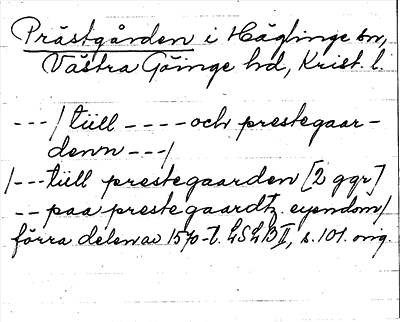 Prästgården i Häglinge sn,
Västra Göinge hd, Krist. l.
---/ tüll ---- och prestegaar-
denn ---/
/--- tüll prestegaarden [2 ggr]
-- paa prestegaardtz eyendom/
förra delen av 1570-t. LSLB II, s. 101. orig.